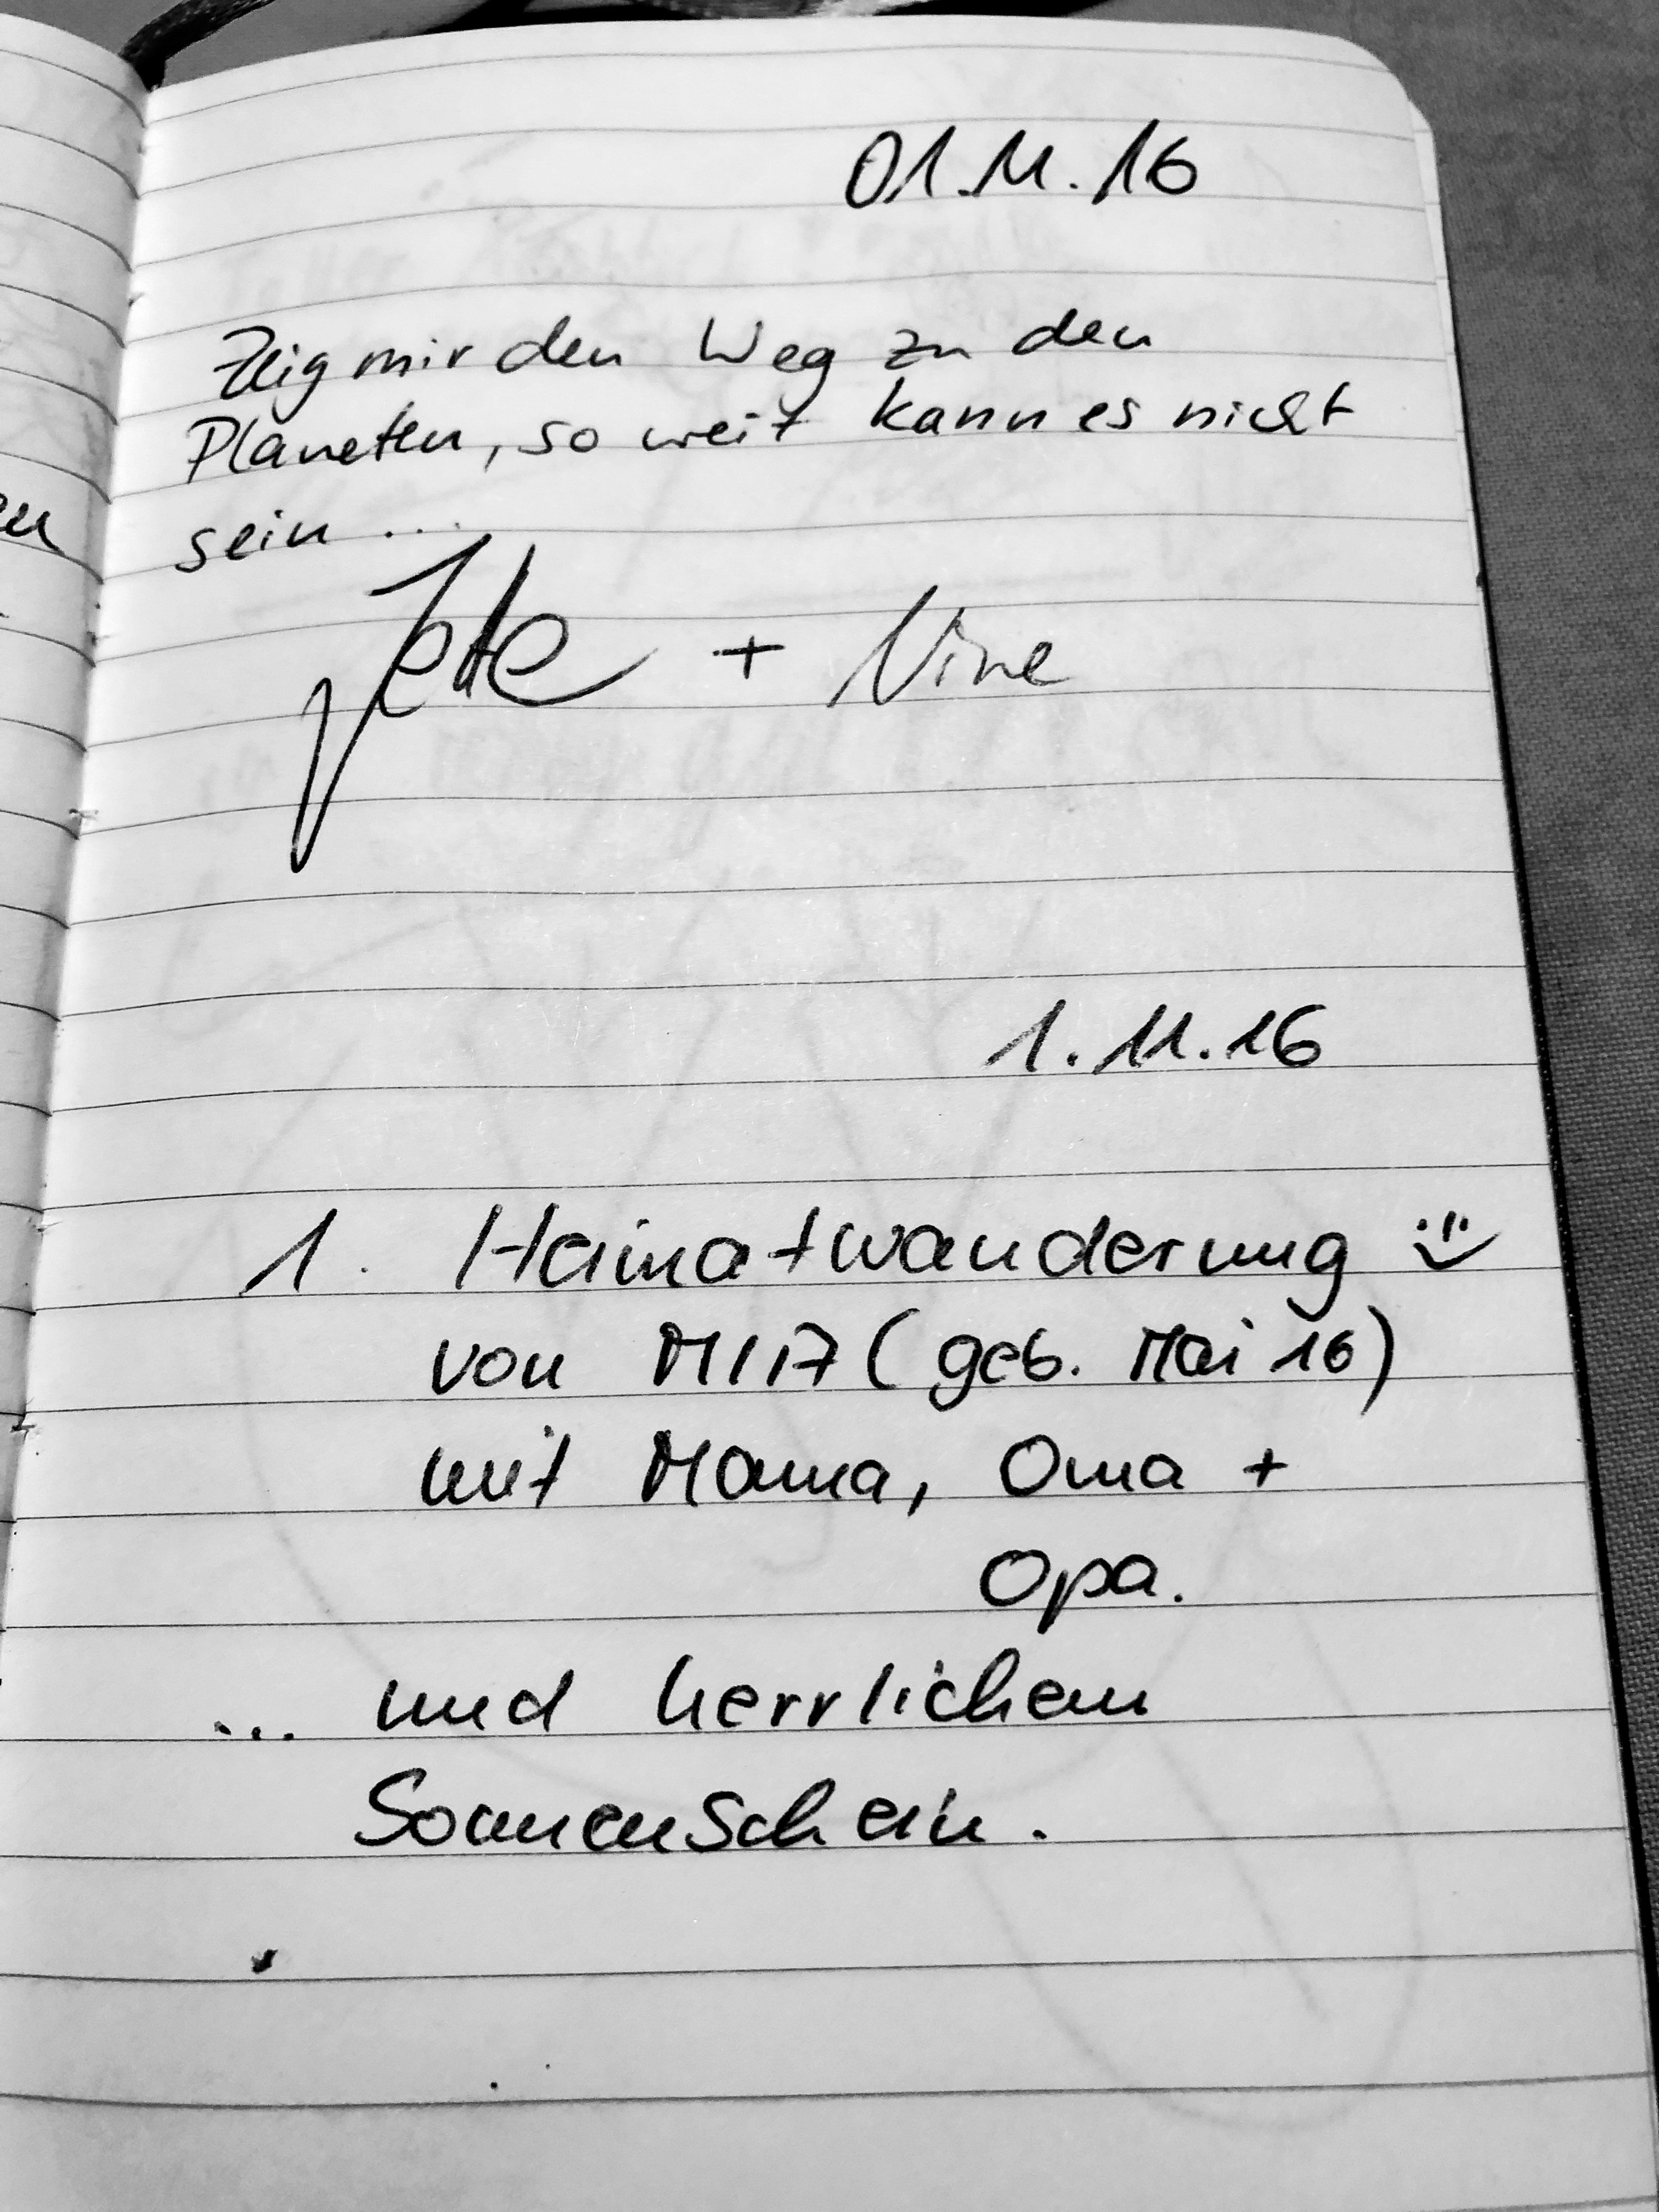 01.11.16
Zeig mir den Weg zu den
Planeten, so weit kann es nicht
sein ...
Jette + Nine
1.11.16
1. Heimatwanderung
von MIA (geb. Mai 16)
mit Mama, Oma +
Opa.
... und herrlichem
Sonnenschein.